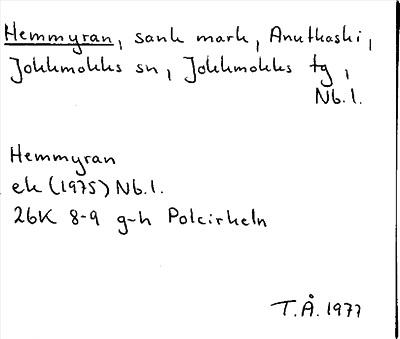 Hemmyran, sank mark, Anutkaski,
Jokkmokks sn, Jokkmokks tg,
Nb.l.
Hemmyran
ek (1975) Nb.l.
26K 8-9 g-h Polcirkeln
T.Å. 1977